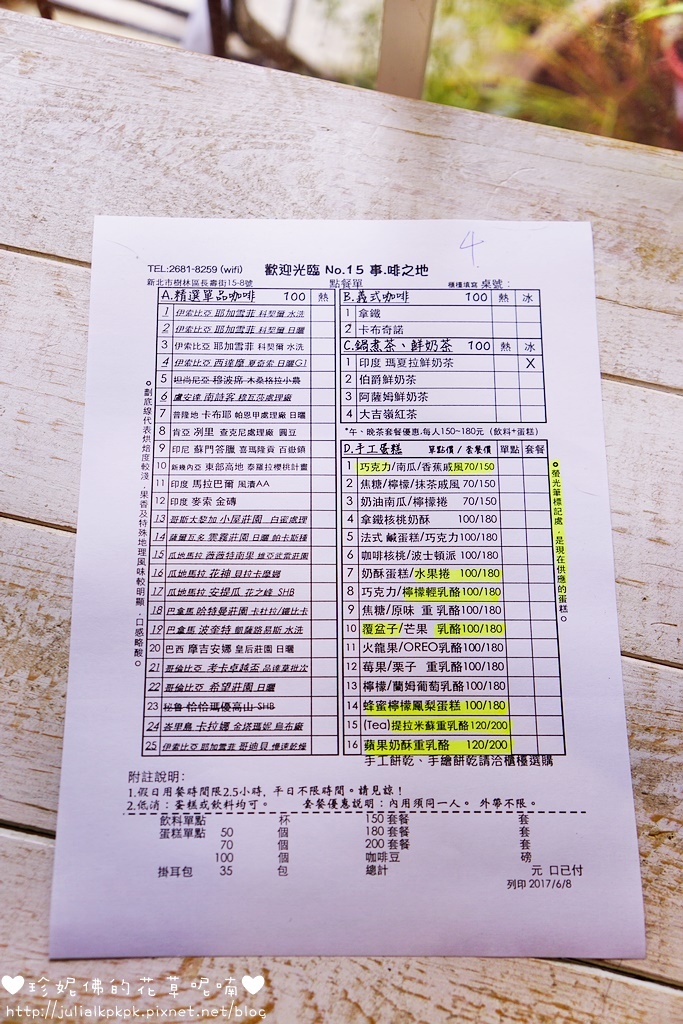 4
TEL:2681-8259 (wifi) 歡迎光臨 No.15 事.啡之地
新北市樹林區長壽街15-8號 點餐單 櫃檯填寫 桌號：
A.精選單品咖啡 100 熱
1 伊索比亞 耶加雪菲 科契爾 水洗
2 伊索比亞 耶加雪菲 科契爾 日曬
3 伊索比亞 耶加雪菲 科契爾 水洗
4 伊索比亞 西達摩 夏奇索 日曬G1
5 坦尚尼亞 穆波席 木桑格拉小農
6 盧安達 南詩客 穆瓦莎處理廠
7 普隆地 卡布耶 帕恩甲處理廠 日曬
8 肯亞 冽里 查克尼處理廠 圓豆
9 印尼 蘇門答臘 喜瑪隆貢 百嶽鎮
10 新幾內亞 東部高地 泰羅拉櫻桃計畫
11 印度 馬拉巴爾 風漬AA
12 印度 麥索 金磚
13 哥斯大黎加 小屋莊園 白蜜處理
14 薩爾瓦多 雲霧莊園 日曬 帕卡斯種
15 瓜地馬拉 薇薇特南果 雄亞武雷莊園
16 瓜地馬拉 花神 貝拉卡摩娜
17 瓜地馬拉 安提瓜 花之峰 SHB
18 巴拿馬 哈特曼莊園 卡杜拉/鐵比卡
19 巴拿馬 波奎特 凱薩路易斯 水洗
20 巴西 摩吉安娜 皇后莊園 日曬
21 哥倫比亞 考卡卓越盃 品達草批次
22 哥倫比亞 希望莊園 日曬
23 秘魯 恰恰瑪優高山 SHB
24 峇里島 卡拉娜 金塔瑪妮 烏布廠
25 伊索比亞 耶加雪菲 哥迪貝 慢速乾燥
劃底線代表烘焙度較淺，果香及特殊地理風味較明顯，口感略酸。
B.義式咖啡 100 熱 冰
1 拿鐵
2 卡布奇諾
C.鍋煮茶、鮮奶茶 100 熱 冰
1 印度 瑪夏拉鮮奶茶 X
2 伯爵鮮奶茶
3 阿薩姆鮮奶茶
4 大吉嶺紅茶
*午、晚茶套餐優惠.每人150~180元 (飲料+蛋糕)
D.手工蛋糕 單點價 / 套餐價 單點 套餐
1 巧克力/南瓜/香蕉戚風70/150
2 焦糖/檸檬/抹茶戚風 70/150
3 奶油南瓜/檸檬捲 70/150
4 拿鐵核桃奶酥 100/180
5 法式 鹹蛋糕/巧克力100/180
6 咖啡核桃/波士頓派 100/180
7 奶酥蛋糕/水果捲 100/180
8 巧克力/檸檬輕乳酪100/180
9 焦糖/原味 重乳酪100/180
10 覆盆子/芒果 乳酪100/180
11 火龍果/OREO乳酪100/180
12 莓果/栗子 重乳酪 100/180
13 檸檬/蘭姆葡萄乳酪100/180
14 蜂蜜檸檬鳳梨蛋糕 100/180
15 (Tea)提拉米蘇重乳酪120/200
16 蘋果奶酥重乳酪 120/200
手工餅乾、手繪餅乾請洽櫃檯選購
螢光筆標記處，是現在供應的蛋糕。
附註說明:
1.假日用餐時間限2.5小時, 平日不限時間。請見諒！
2.低消：蛋糕或飲料均可。 套餐優惠說明：內用須同一人。 外帶不限。
飲料單點 杯 150 套餐 套
蛋糕單點 50 個 180 套餐 套
70 個 200 套餐 套
100 個 咖啡豆 磅
掛耳包 35 包 總計 元 口已付
列印 2017/6/8
♥珍妮佛的花草呢喃♥
http://julialkpkpk.pixnet.net/blog